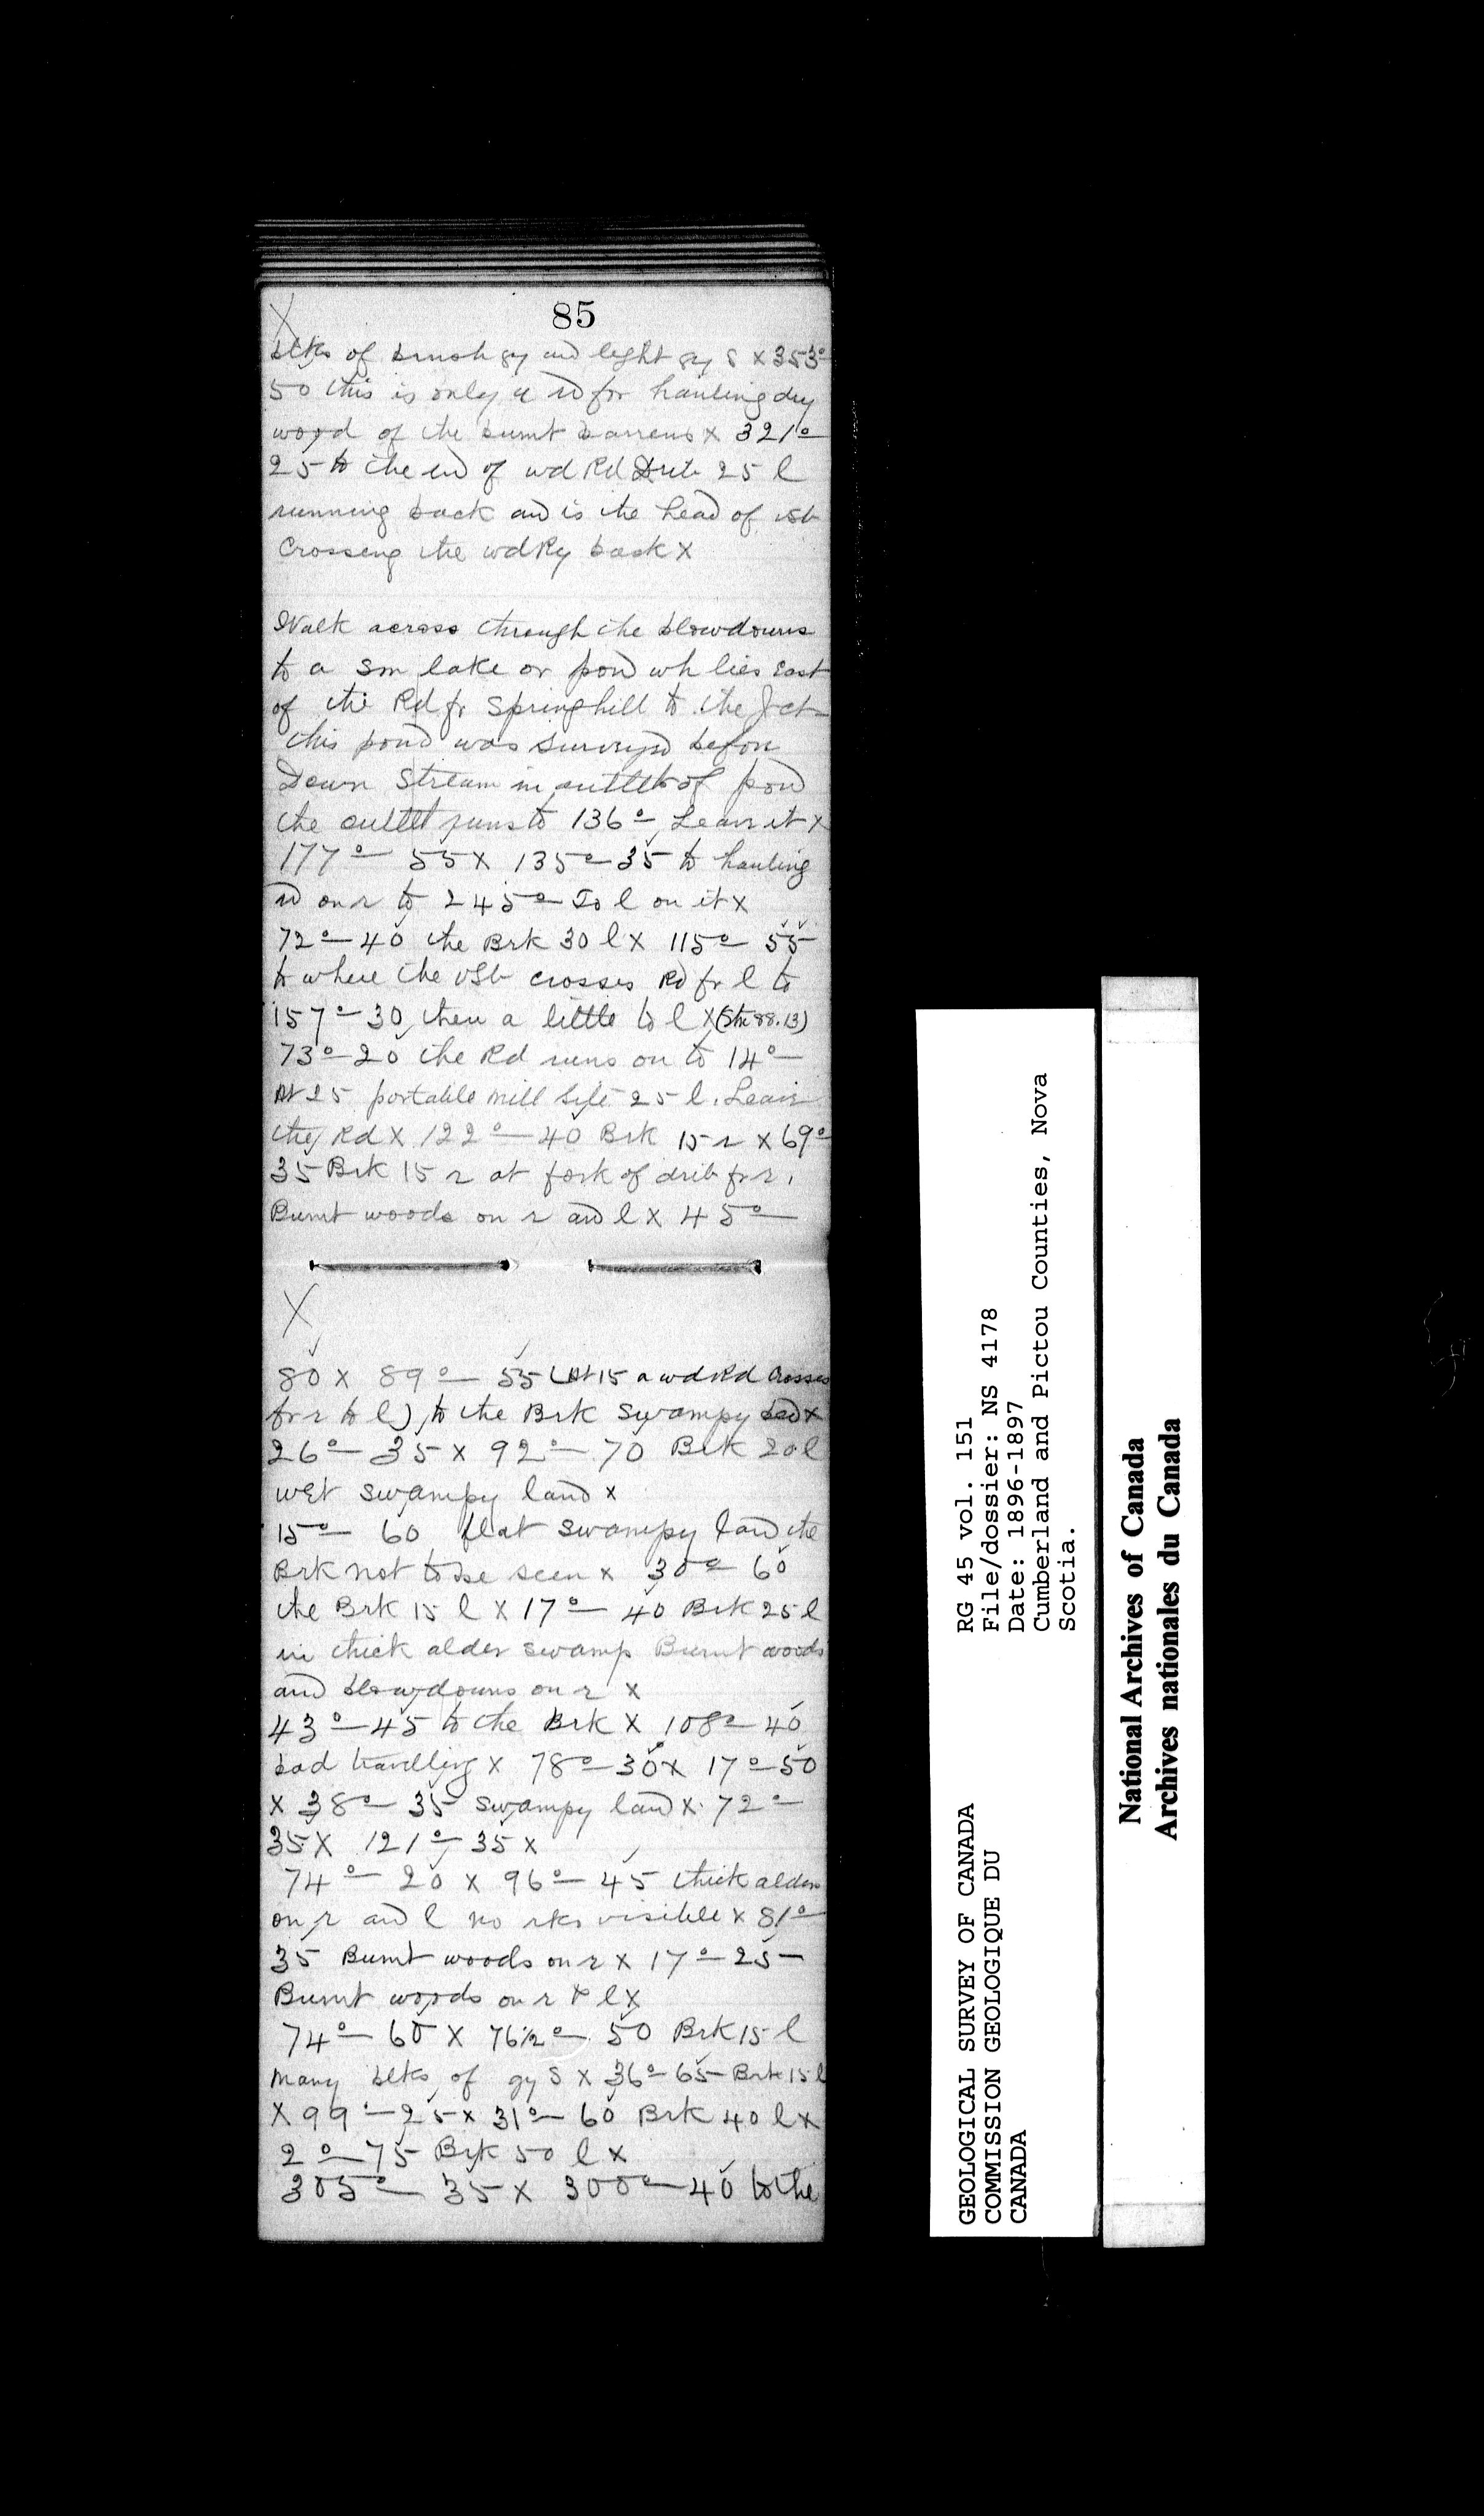 85
X
blks of brnsh gy and light gy S x 353°
50 this is only a rd for hauling dry
wood of the burnt barrens x 321°
25 to the end of wd Rd Drib 25 l
running back and is the head of vsb
Crossing the wd Ry back x
Walk across through the blowdowns
to a sm lake or pond wh lies East
of the Rd fr Springhill to the Jct
this pond was surveyed before
Down Stream in outlet of pond
the outlet runs to 136° Leave it x
177° 55 x 135° 35 to hauling
rd on r to 245° To l on it x
72° 40 the Brk 30 l x 115° 55
to where the vsb crosses Rd fr l to
157° 30, then a little to l x (Str 88.13)
73° 20 the Rd runs on to 14°
At 25 portable mill site 25 l. Leave
the Rd x 122° 40 Brk 15 r x 69°
35 Brk 15 r at fork of drib fr r,
Burnt woods on r and l x 45°
X
80 x 89° 55 (At 15 a wd Rd Crosses
fr r to l), to the Brk Swampy bad x
26° 35 x 92° 70 Brk 20 l
wet swampy land x
15° 60 flat swampy land the
Brk not to be seen x 30° 60
the Brk 15 l x 17° 40 Brk 25 l
in thick alder swamp Burnt woods
and blowdowns on r x
43° 45 to the Brk x 108° 40
bad travelling x 78° 30 x 17° 50
x 38° 35 swampy land x 72°
35 x 121° 35 x
74° 20 x 96° 45 thick alders
on r and l no rks visible x 81°
35 Burnt woods on r x 17° 25
Burnt woods on r & l x
74° 60 x 76 1/2° 50 Brk 15 l
Many blks of gy S x 36° 65 Brk 15 l
x 99° 25 x 31° 60 Brk 40 l x
2° 75 Brk 50 l x
305° 35 x 300° 40 to the
GEOLOGICAL SURVEY OF CANADA
COMMISSION GEOLOGIQUE DU
CANADA
RG 45 vol. 151
File/dossier: NS 4178
Date: 1896-1897
Cumberland and Pictou Counties, Nova
Scotia.
National Archives of Canada
Archives nationales du Canada